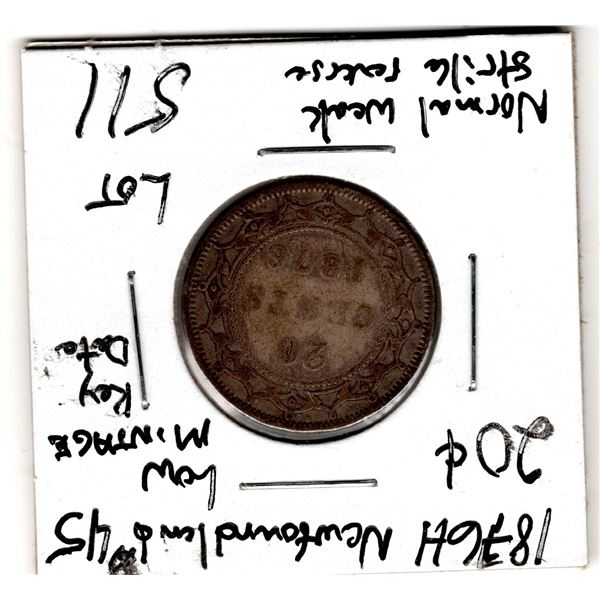 1876H Newfoundland $45
20¢
Low
MINTAGE
Key
Date
20
CENTS
1876
LOT
511
Normal weak
strike reverse